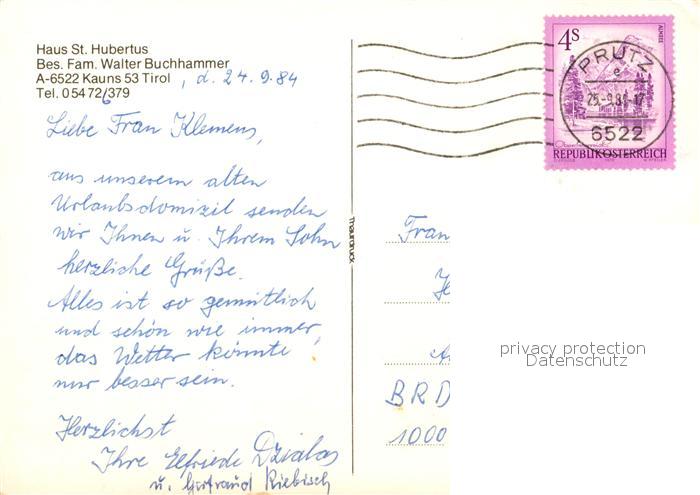 Haus St. Hubertus
Bes. Fam. Walter Buchhammer
A-6522 Kauns 53 Tirol , d. 24.9.84
Tel. 05472/6379
Liebe Frau Klemens,
aus unserem alten
Urlaubsdomizil senden
wir Ihnen u. Ihrem Sohn
herzliche Grüße.
Alles ist so gemütlich
und schön wie immer,
das Wetter könnte
nur besser sein.
Herzlichst
Ihre Elfriede Dzialas
u. Gertraud Riebisch
Thaurdruck
4s
ALMSEE
PRUTZ
e
25.-9.84-17
6522
Oberösterreich
REPUBLIK ÖSTERREICH
Frau
BRD
1000
privacy protection
Datenschutz